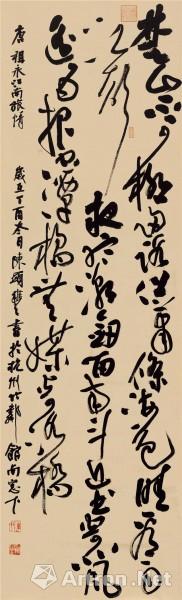 楚山不可極歸路但蕭條海色晴看雨
江聲
夜聽潮劍留南斗近書寄北風
遙為報空潭橘無媒寄洛橋
唐祖詠江南旅情 歲在丁酉冬月陳書於杭州北郭館南窗下
Artron.Net